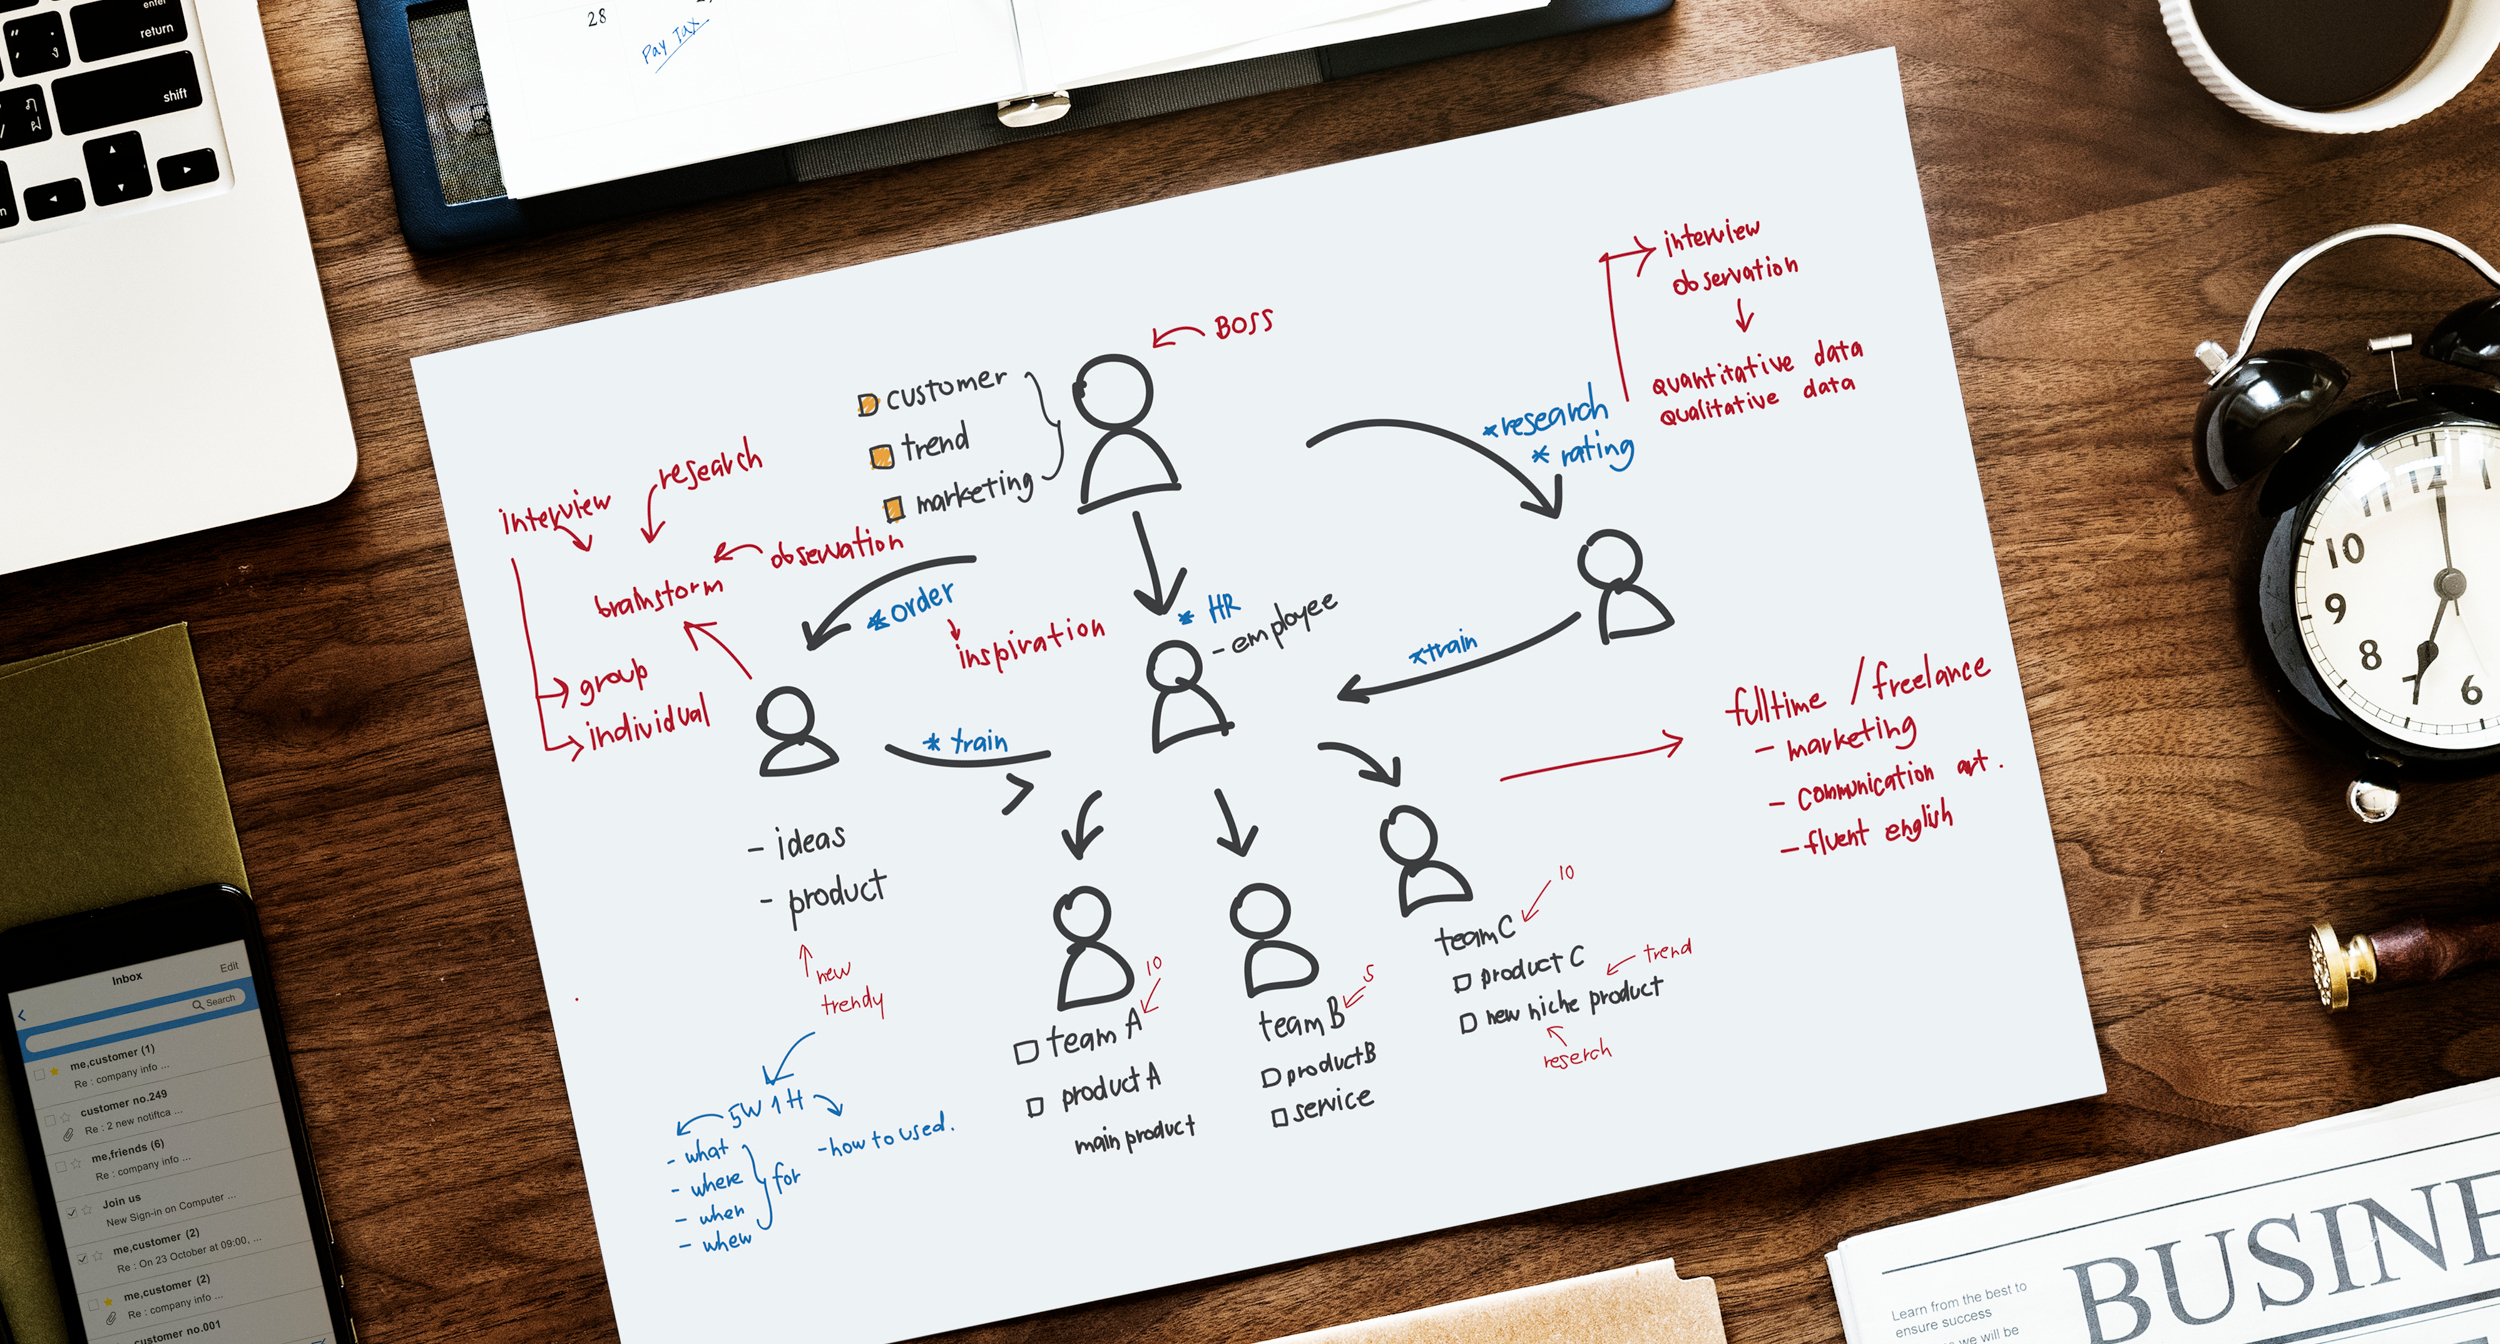 enter
return
shift
28
Pay Tax
BOSS
customer
trend
marketing
interview
observation
quantitative data
qualitative data
*research
* rating
research
interview
observation
brainstorm
*order
inspiration
group
individual
* HR
- employee
*train
* train
fulltime / freelance
- marketing
- communication art.
- fluent english
- ideas
- product
new
trendy
5W 1H
- what
- where
- when
- whew
for
- how to used.
10
team A
product A
main product
5
team B
product B
service
10
team C
product C
trend
new niche product
reserch
10
9
8
7
6
12
11
Inbox
Edit
Search
me,customer (1)
Re : company info ...
customer no.249
Re : 2 new notiftca ...
me,friends (6)
Re : company info ...
Join us
New Sign-in on Computer ...
me,customer (2)
Re : On 23 October at 09:00, ...
me,customer (2)
Re : company info ...
customer no.001
BUSINE
Learn from the best to
ensure success
we will be